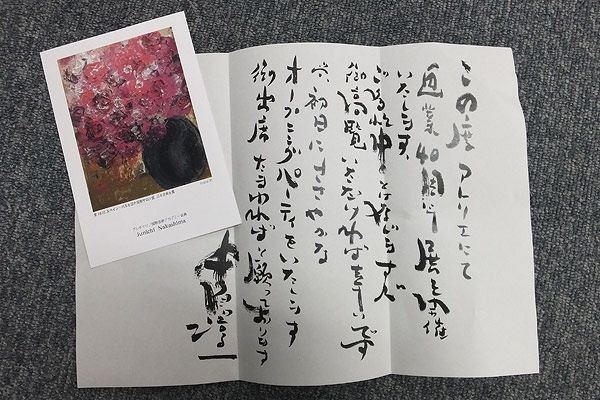 この度 アトリエにて
画業40周年 展を開催
いたします
ご多忙中とは存じますが
御高覧いただければ幸いです
尚初日にささやかな
オープニングパーティをいたします
御出席たまわればと願っております
中島淳一
Junichi Nakashima